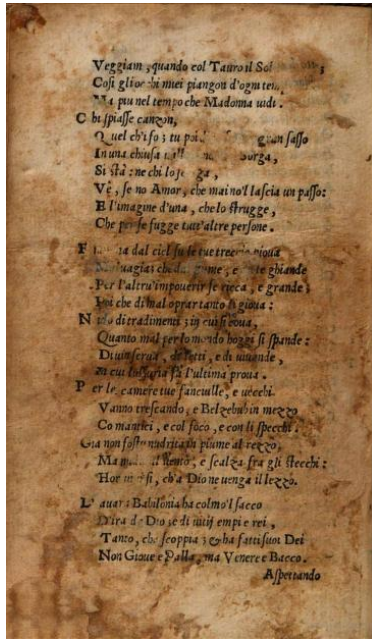 Veggiam, quando col Tauro il Sol
Cosi gli occhi miei piangon d'ogni tem
Ma piu nel tempo che Madonna uidi.
Chi spiasse canzon,
Quel ch'i fo; tu poi gran sasso
In una chiusa
Si sta: ne chi lo
Ve, se no Amor, che mai no'l lascia un passo:
E l'imagine d'una, che lo strugge,
Che per se fugge tutt'altre persone.
dal ciel su le tue treccie pioua
Maluagia; che dal e ghiande
Per l'altru'impouerir se ricca, e grande;
Poi che di mal oprar tanto ti gioua:
Nido di tradimenti; in cui si coua,
Quanto mal per lo mondo hoggi si spande:
Di uin serua, di letti, e di uiuande,
In cui lussuria fa l'ultima proua.
Per le camere tue fanciulle, e uecchi
Vanno trescando, e Belzebub in mezzo
Co mantici, e col foco, e con li specchi.
Gia non fosti nudrita in piume al rezzo,
Ma nuda al uento, e scalza fra gli stecchi:
Hor si, ch'a Dio ne uenga il lezzo.
L'auara Babilonia ha colmo'l sacco
D'ira de Dio; e di uitij empi e rei,
Tanto, che scoppia; & ha fatti suoi Dei
Non Gioue e Palla, ma Venere e Bacco.
Aspettando